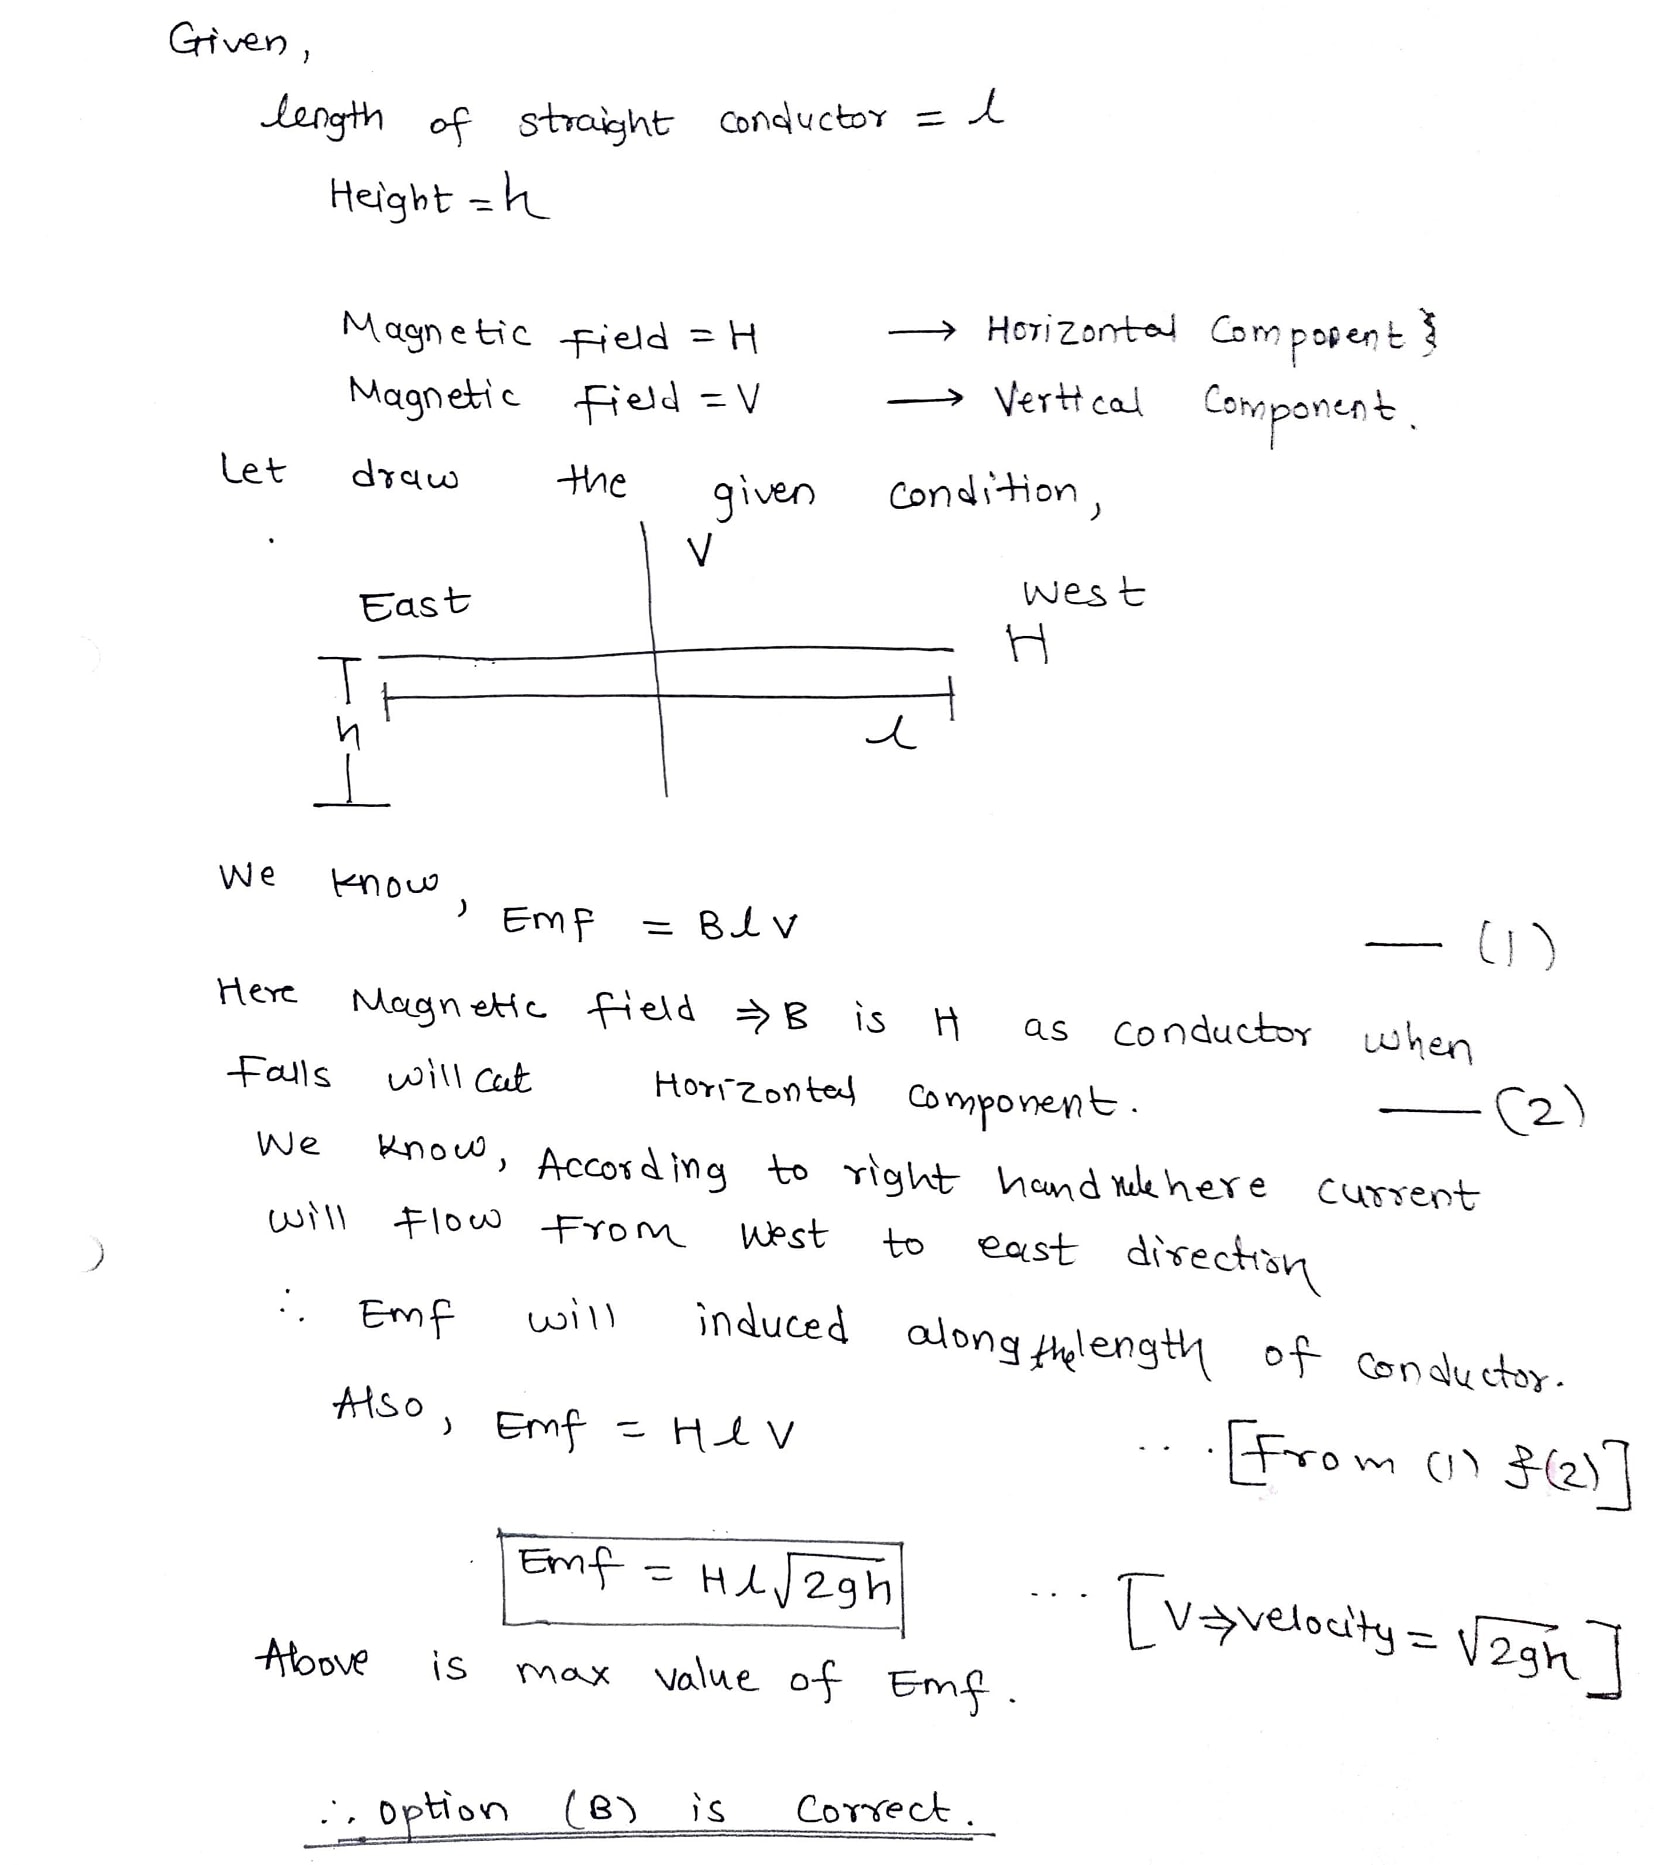 Given,
length of straight conductor = l
Height = h
Magnetic Field = H → Horizontal Component }
Magnetic Field = V → Vertical Component.
Let draw the given condition,
V
East West
H
h
l
We know,
Emf = B l v — (1)
Here Magnetic field ⇒ B is H as conductor when
Falls will cut Horizontal component. — (2)
We know, According to right hand rule here current
will flow from west to east direction
∴ Emf will induced along the length of conductor.
Also, Emf = H l v ... [From (1) & (2)]
Emf = H l √2gh ... [V ⇒ velocity = √2gh]
Above is max value of Emf.
∴ option (B) is correct.